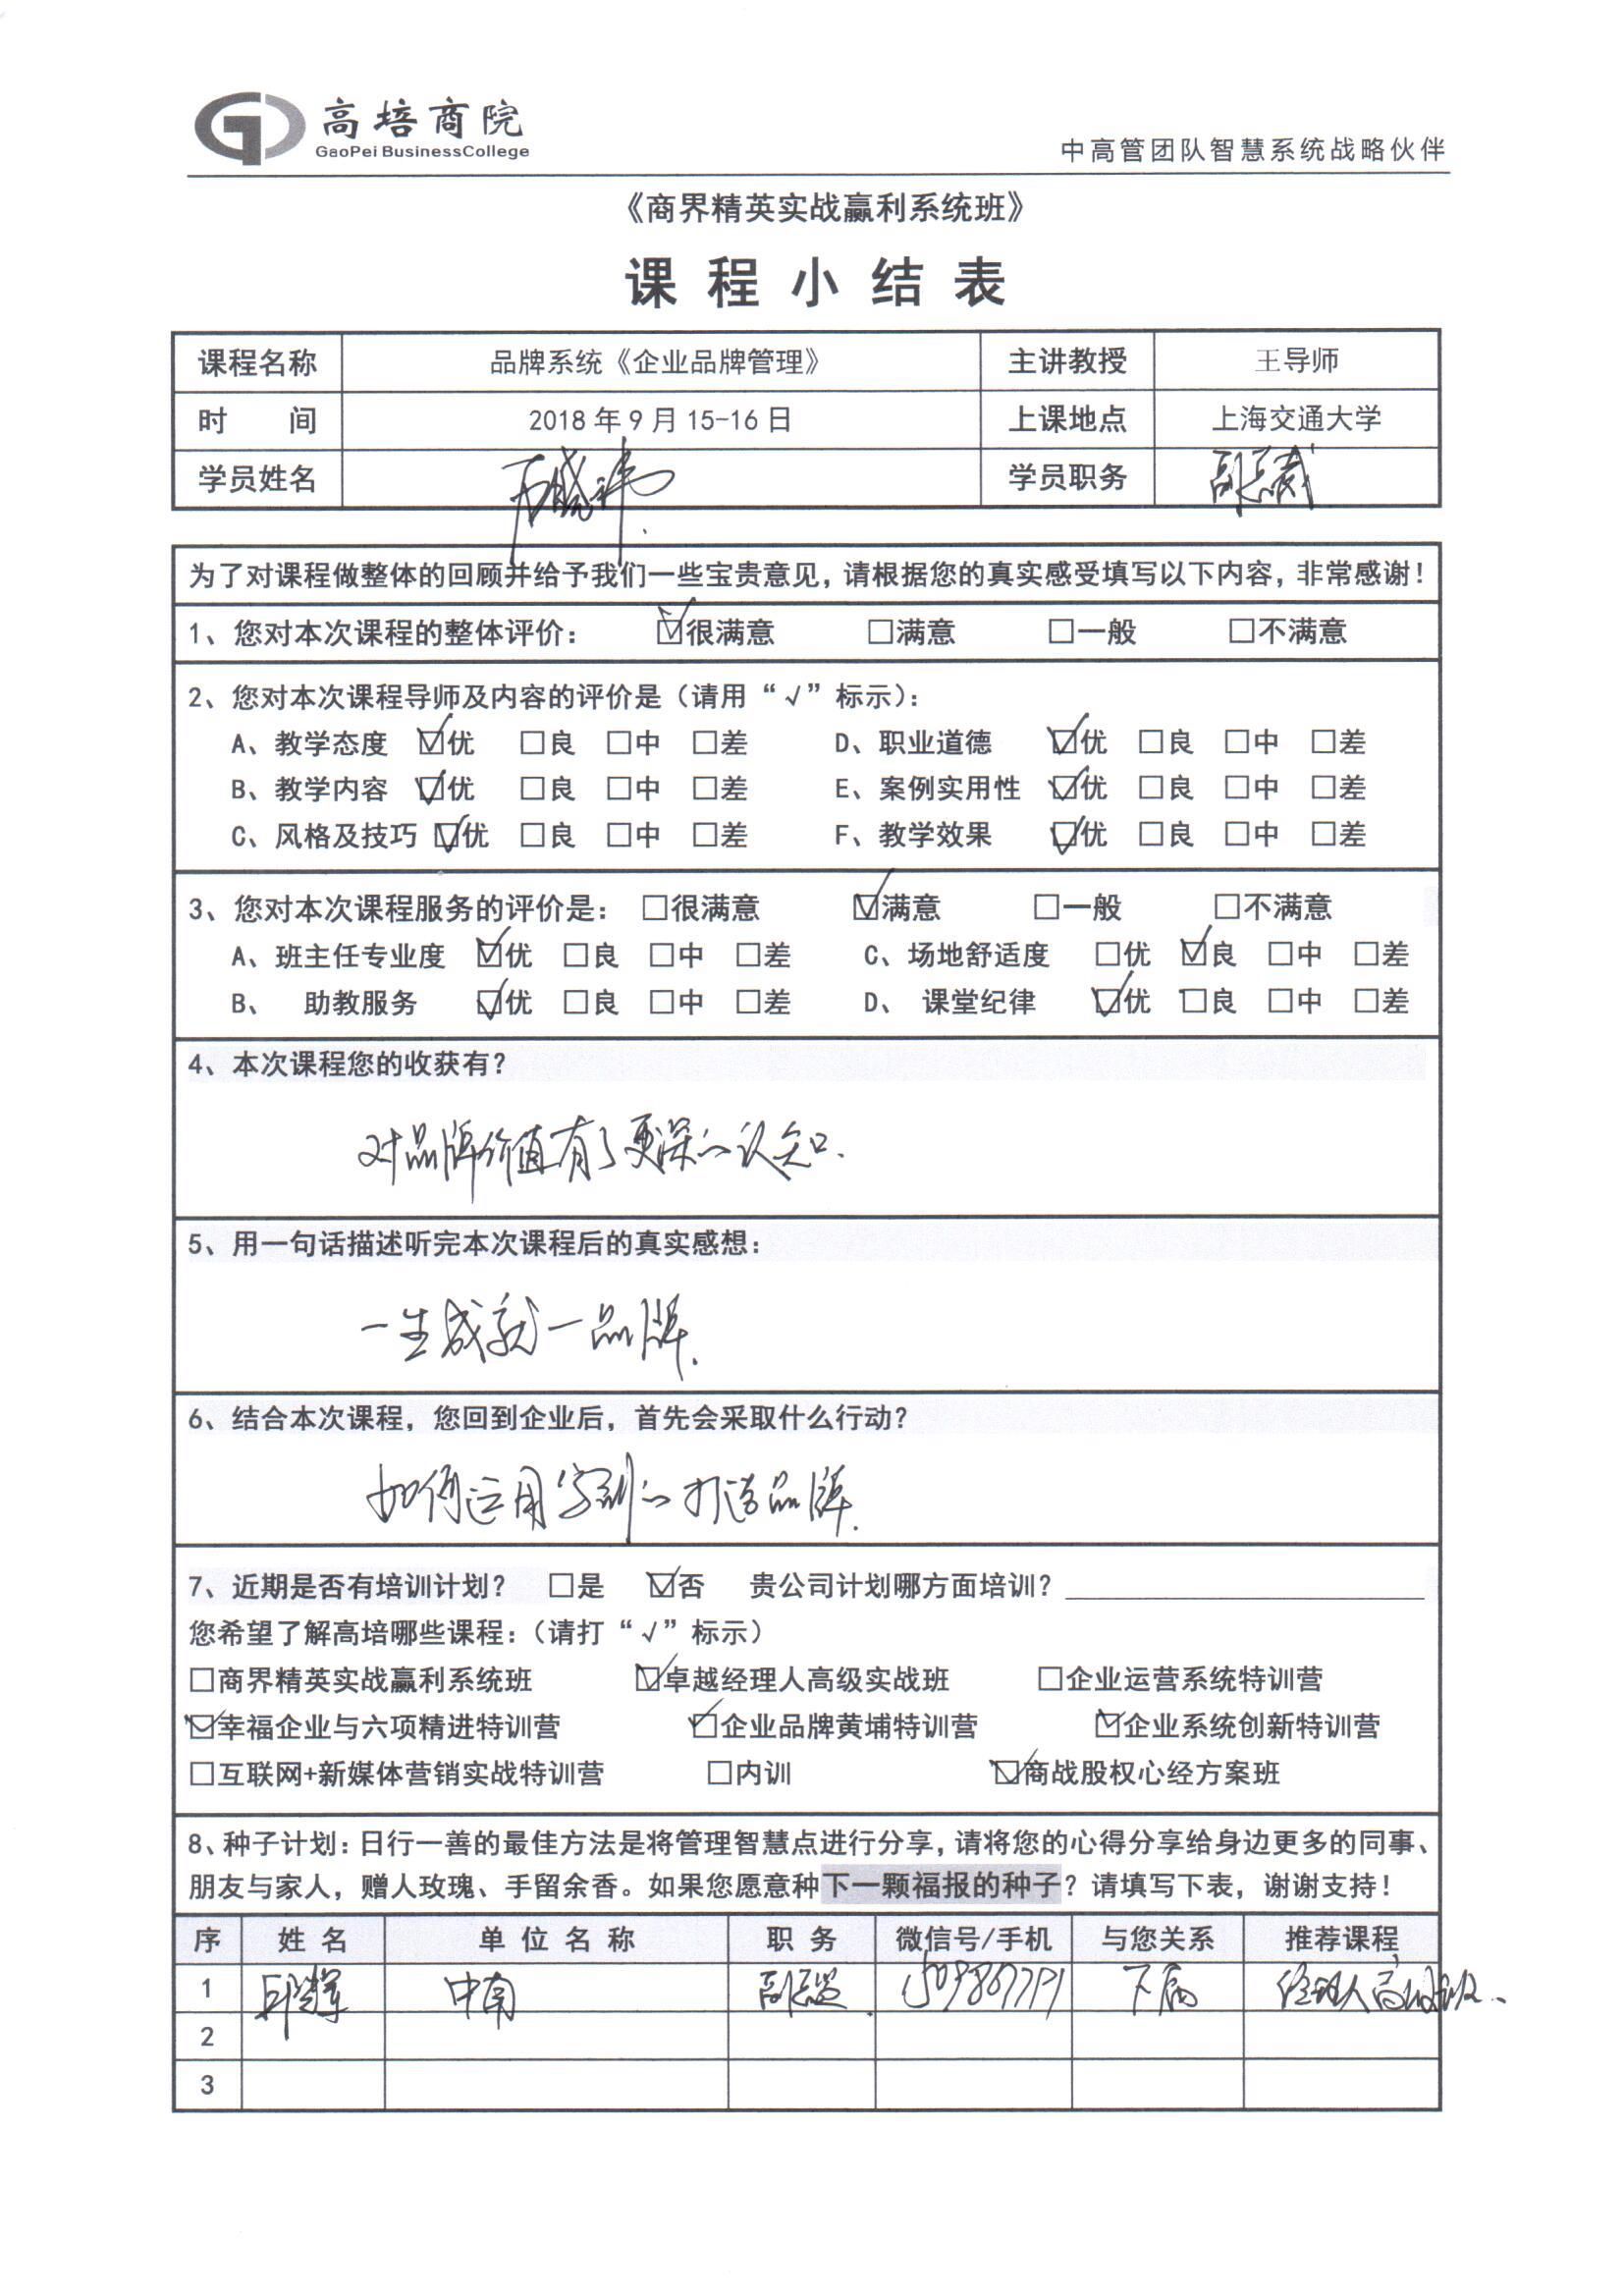 高培商院
GaoPei BusinessCollege
中高管团队智慧系统战略伙伴
《商界精英实战赢利系统班》
课程小结表
课程名称 品牌系统《企业品牌管理》 主讲教授 王导师
时 间 2018年9月15-16日 上课地点 上海交通大学
学员姓名 学员职务
为了对课程做整体的回顾并给予我们一些宝贵意见，请根据您的真实感受填写以下内容，非常感谢！
1、您对本次课程的整体评价： ☑很满意 □满意 □一般 □不满意
2、您对本次课程导师及内容的评价是（请用“√”标示）：
A、教学态度 ☑优 □良 □中 □差 D、职业道德 ☑优 □良 □中 □差
B、教学内容 ☑优 □良 □中 □差 E、案例实用性 ☑优 □良 □中 □差
C、风格及技巧 ☑优 □良 □中 □差 F、教学效果 ☑优 □良 □中 □差
3、您对本次课程服务的评价是： □很满意 ☑满意 □一般 □不满意
A、班主任专业度 ☑优 □良 □中 □差 C、场地舒适度 □优 ☑良 □中 □差
B、 助教服务 ☑优 □良 □中 □差 D、 课堂纪律 ☑优 □良 □中 □差
4、本次课程您的收获有？
对品牌价值有了更深的认知.
5、用一句话描述听完本次课程后的真实感想：
一生成就一品牌.
6、结合本次课程，您回到企业后，首先会采取什么行动？
如何运用学到的打造品牌.
7、近期是否有培训计划？ □是 ☑否 贵公司计划哪方面培训？
您希望了解高培哪些课程：（请打“√”标示）
□商界精英实战赢利系统班 ☑卓越经理人高级实战班 □企业运营系统特训营
☑幸福企业与六项精进特训营 ☑企业品牌黄埔特训营 ☑企业系统创新特训营
□互联网+新媒体营销实战特训营 □内训 ☑商战股权心经方案班
8、种子计划：日行一善的最佳方法是将管理智慧点进行分享，请将您的心得分享给身边更多的同事、
朋友与家人，赠人玫瑰、手留余香。如果您愿意种下一颗福报的种子？请填写下表，谢谢支持！
序 姓 名 单 位 名 称 职 务 微信号/手机 与您关系 推荐课程
1 中南 下属
2
3